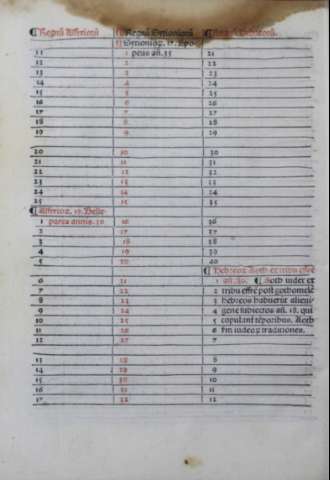 ¶ Regnū Assirioꝝ ¶ Regnū Sitionioꝝ
¶ Sitionioꝝ. 17. Epo-
11 1 peus añ. 35 21
12 2
13 3
14 4 24
15 5 25
16 6 26
17 7 27
18 8 28
19 9 29
20 10 30
21 11 31
22 12 32
23 13 33
24 14 34
25 15 35
¶ Assirioꝝ. 19. Belle
1 pares annis. 30 16 36
2 17 37
3 18 38
4 19 39
5 20 40
¶ Hebreoꝝ Aoth ex tribu effrē
6 21 1 añ. 80. ¶ Aoth iudex ex
7 22 2 tribu effrē post gothonielē
8 23 3 hebreos habuerūt alieni
9 24 4 gene subiectos añ. 18. qui
10 25 5 copulant tēporibus. Aoth
11 26 6 fm iudeoꝝ traditiones.
12 27 7
13 28 8
14 29 9
15 30 10
16 31 11
17 32 12